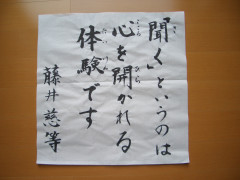 「聞く」というのは
心を開かれる
体験です
藤井慈等